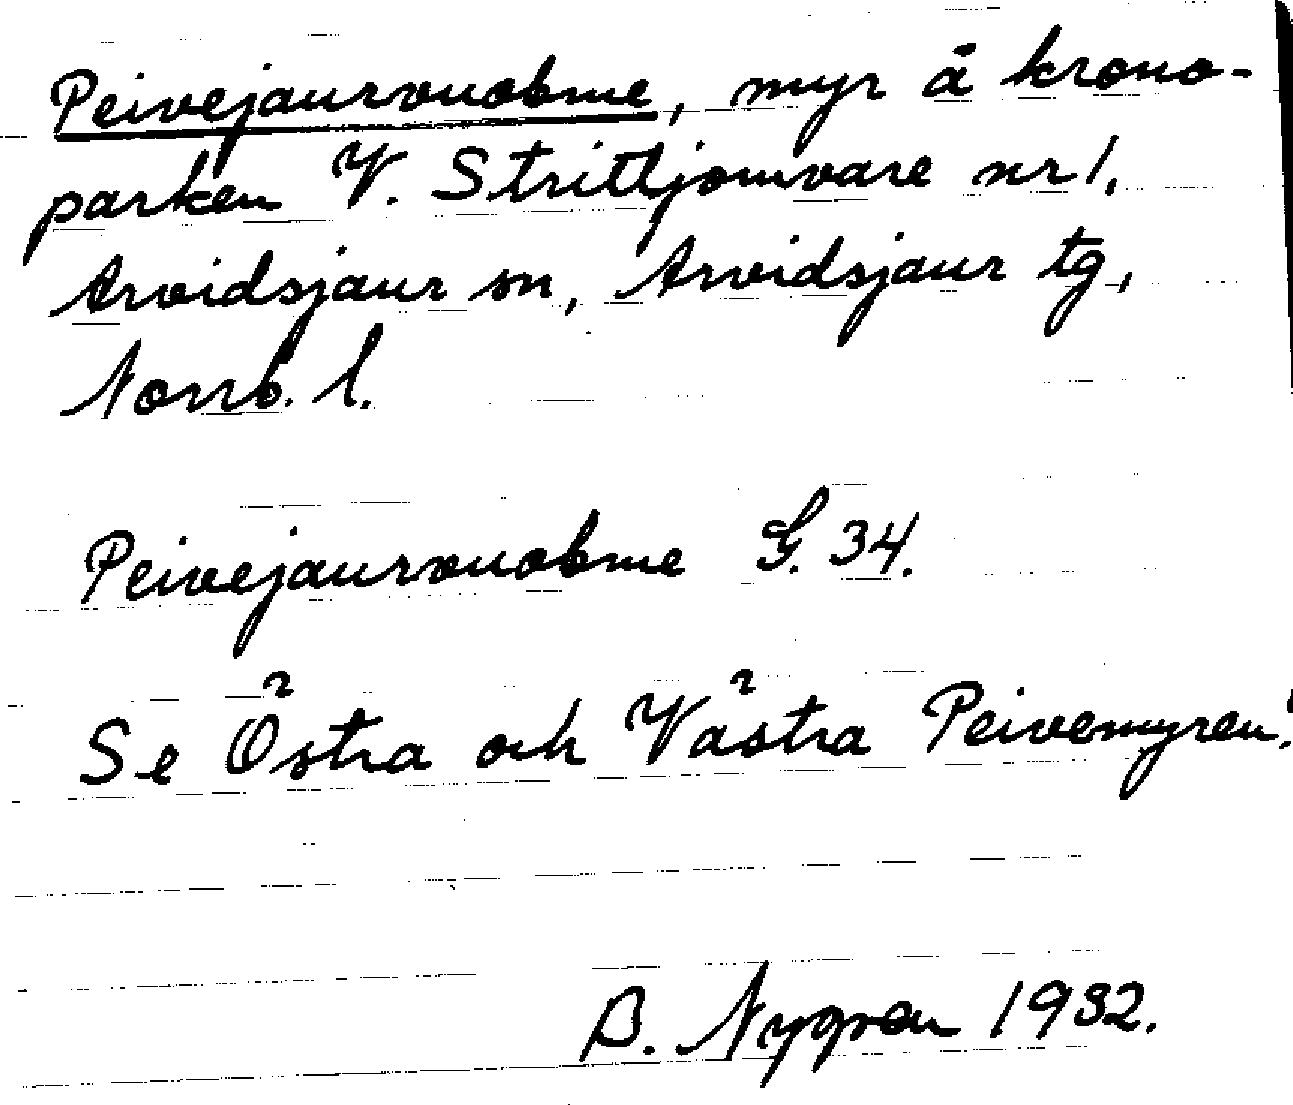 Peivejaurvuobme, myr å krono-
parken V. Strittjomvare nr 1,
Arvidsjaur sn, Arvidsjaur tg,
Norrb. l.
Peivejaurvuobme G. 34.
Se Östra och Västra Peivemyren!
B. Nygren 1932.